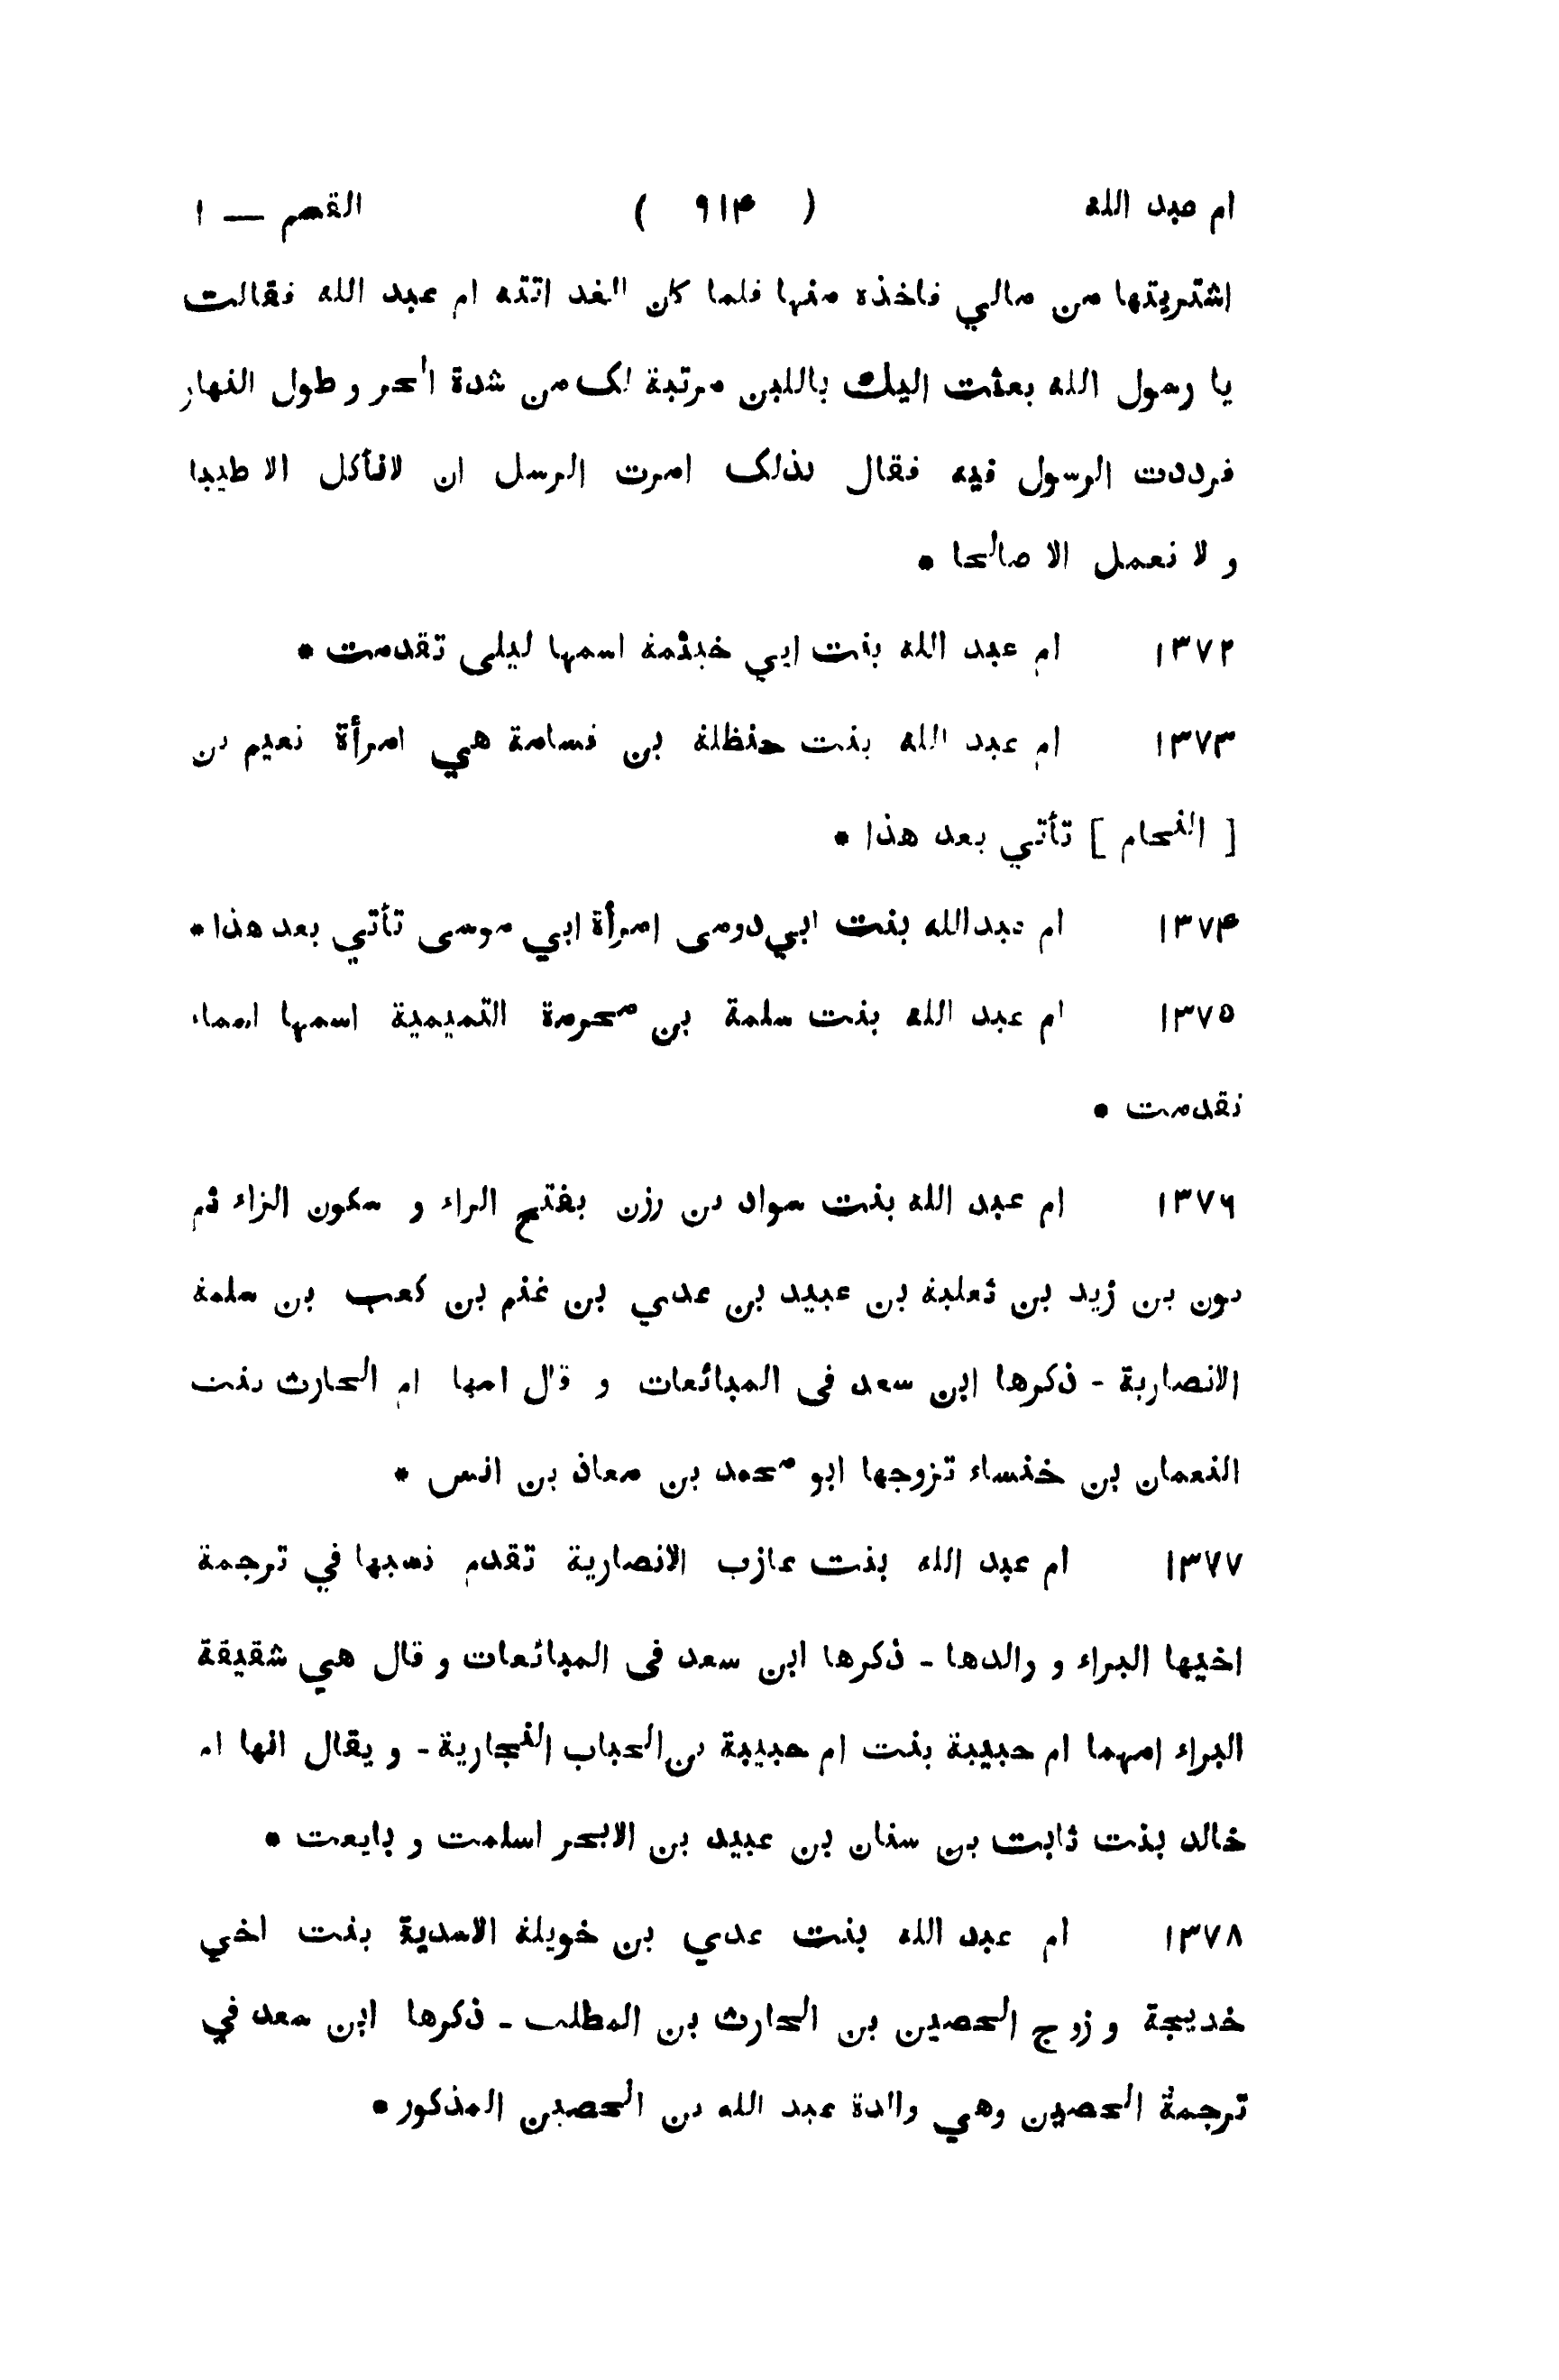 ام عبد الله ( ٩١۴ ) القسم — ١
اشتريتها من مالي فاخذه منها فلما كان الغد اتته ام عبد الله فقالت
يا رسول الله بعثت اليك باللبن مرتبة لک من شدة الحر و طول النهار
فرددت الرسول فيه فقال بذلک امرت الرسل ان لانأكل الا طيبا
و لا نعمل الا صالحا *
١٣٧٢ ام عبد الله بنت ابي خيثمة اسمها ليلى تقدمت *
١٣٧٣ ام عبد الله بنت حنظلة بن قسامة هي امرأة نعيم بن
[ النحام ] تأتي بعد هذا *
١٣٧۴ ام عبدالله بنت ابي دومى امرأة ابي موسى تأتي بعد هذا *
١٣٧٥ ام عبد الله بنت سلمة بن مخرمة التميمية اسمها اسماء
تقدمت *
١٣٧٦ ام عبد الله بنت سواد بن رزن بفتح الراء و سكون الزاء ثم
نون بن زيد بن ثعلبة بن عبيد بن عدي بن غنم بن كعب بن سلمة
الانصارية - ذكرها ابن سعد فى المبائعات و قال امها ام الحارث بنت
النعمان بن خنساء تزوجها ابو محمد بن معاذ بن انس *
١٣٧٧ ام عبد الله بنت عازب الانصارية تقدم نسبها في ترجمة
اخيها البراء و والدها - ذكرها ابن سعد فى المبائعات و قال هي شقيقة
البراء امهما ام حبيبة بنت ام حبيبة بن الحباب النجارية - و يقال انها ام
خالد بنت ثابت بن سنان بن عبيد بن الابحر اسلمت و بايعت *
١٣٧٨ ام عبد الله بنت عدي بن خويلة الاسدية بنت اخي
خديجة و زوج الحصين بن الحارث بن المطلب - ذكرها ابن سعد في
ترجمة الحصين وهي والدة عبد الله بن الحصين المذكور *